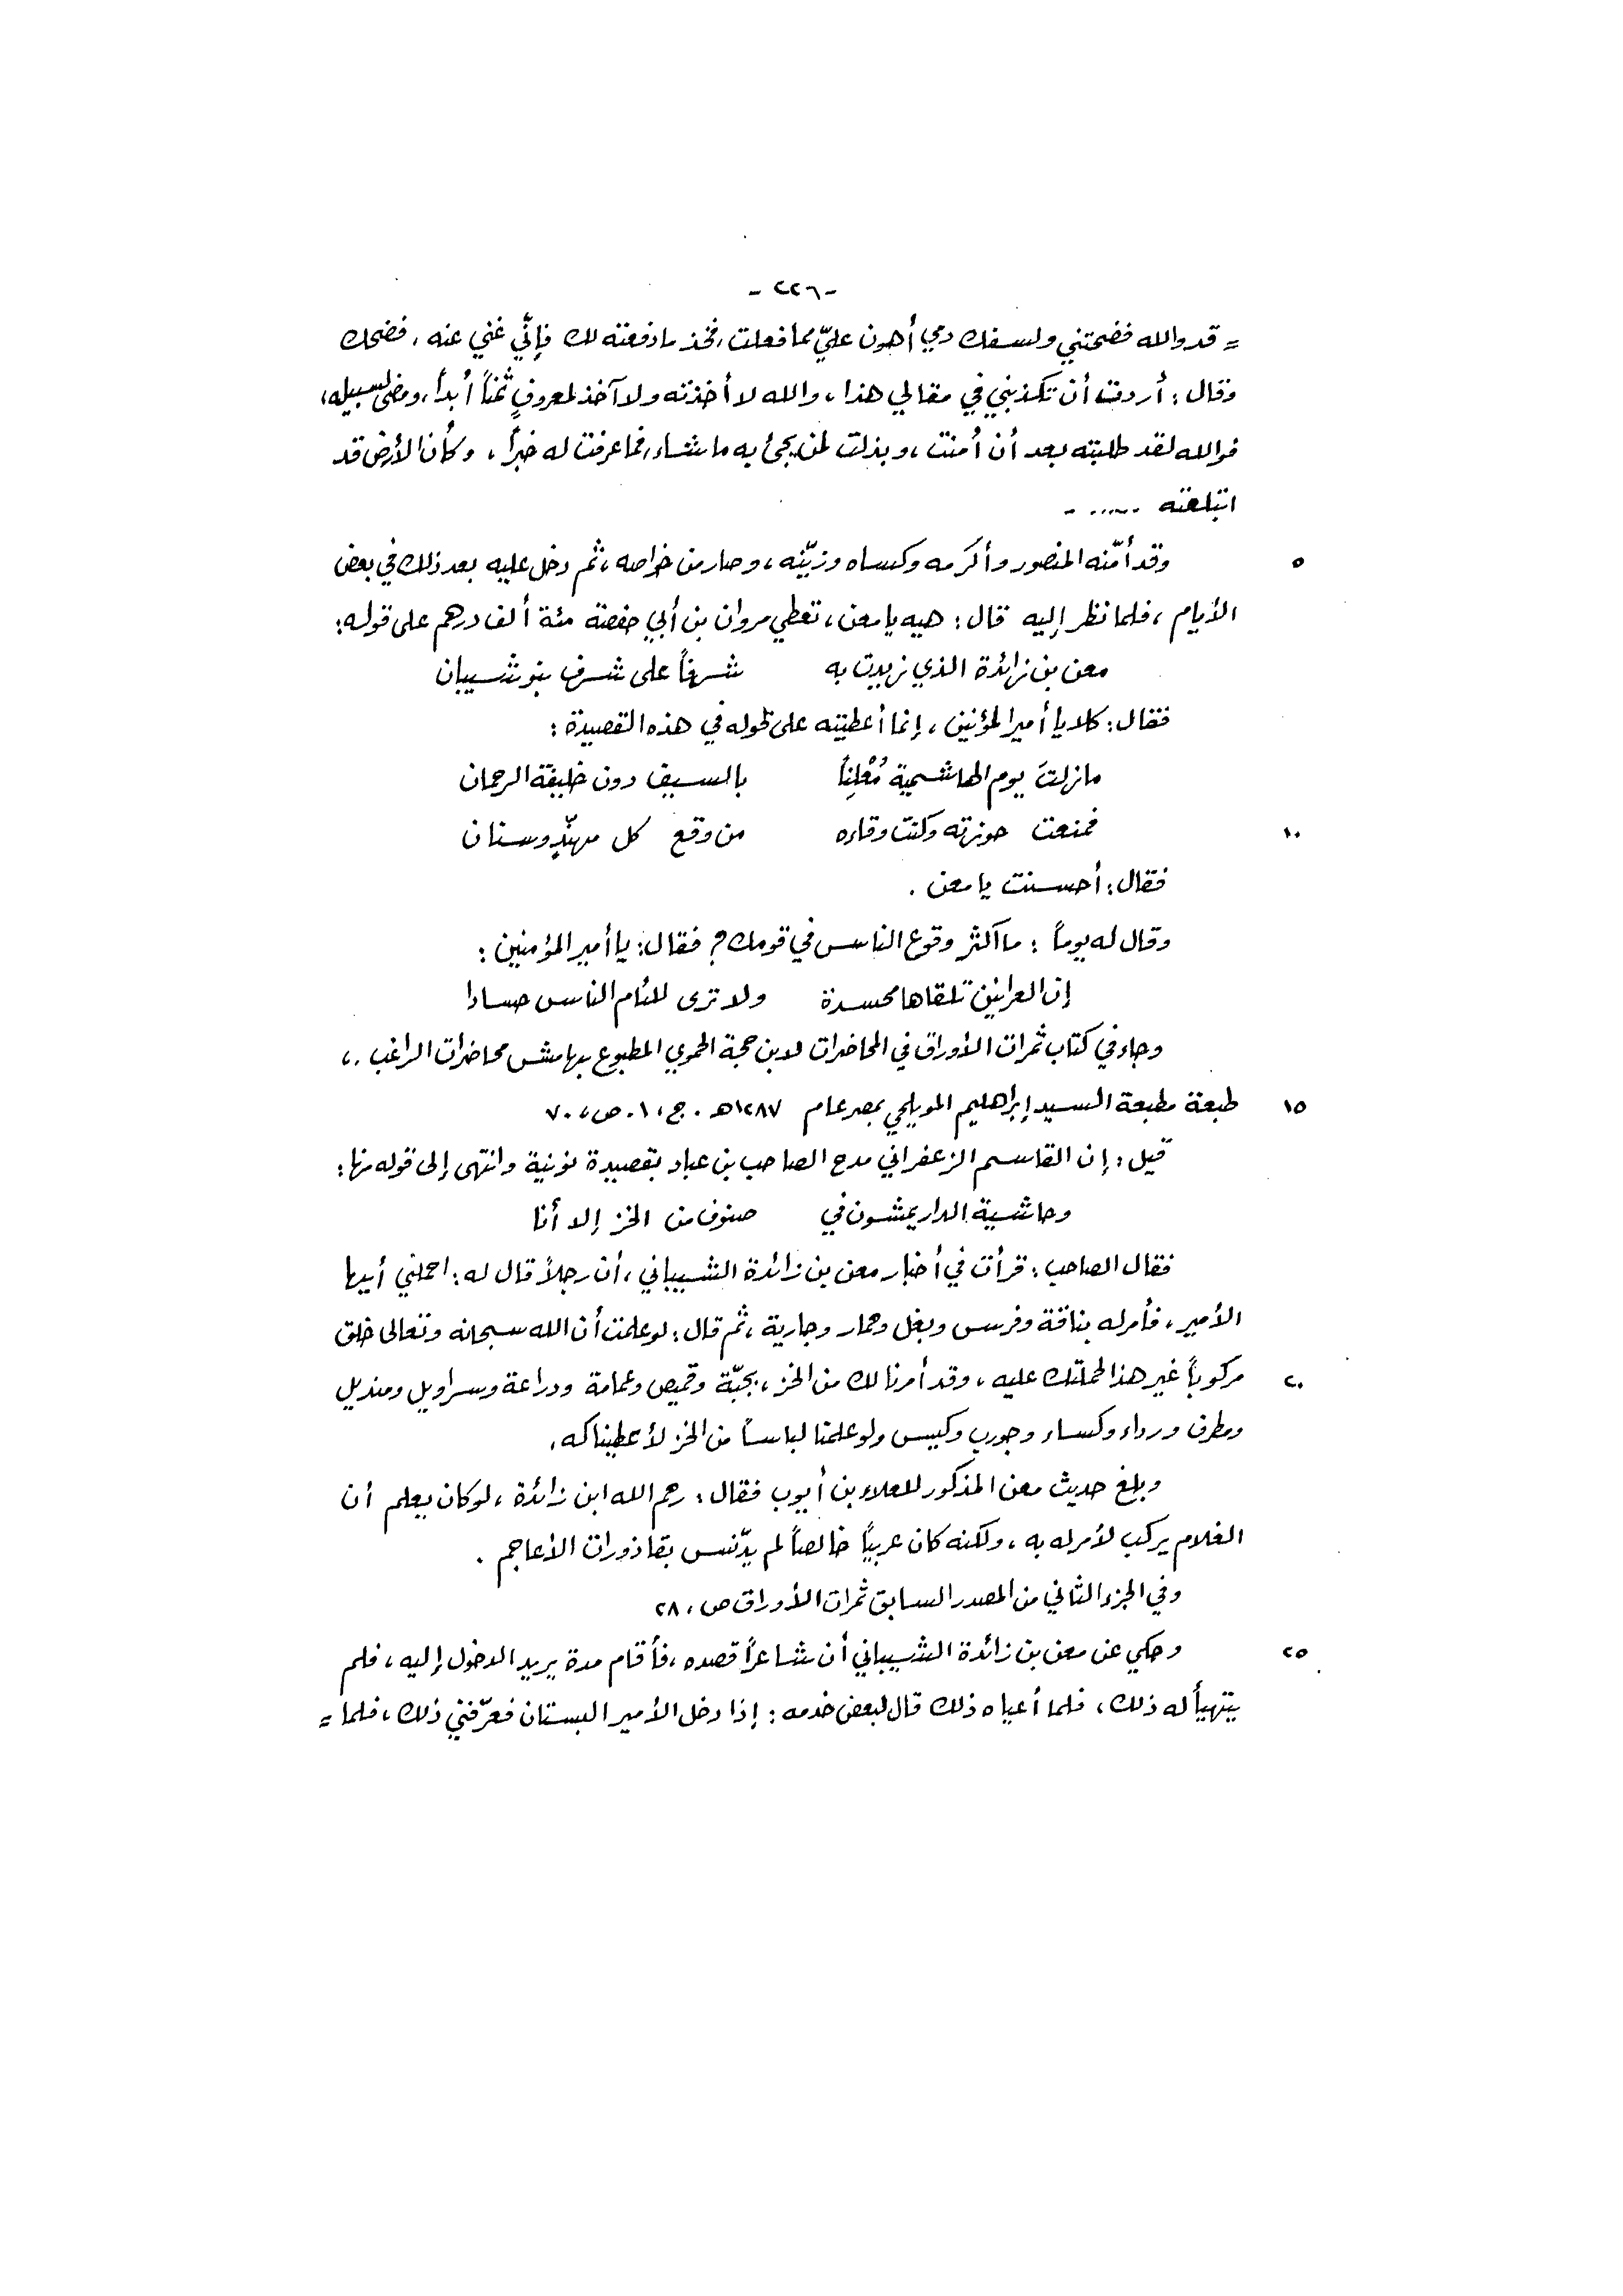 -٢٢٦-
= قد والله فضحتني ولسفك دمي أهون عليّ مما فعلت، فخذ ما دفعته لك فإنّي غني عنه، فضحك
وقال: أردت أن تكذبني في مقالي هذا، والله لا أخذته ولا آخذ لمعروفٍ ثمناً أبداً، ومضى لسبيله،
فوالله لقد طلبته بعد أن أمنت، وبذلت لمن يجئ به ما شاء، فما عرفت له خبراً، وكأن الأرض قد
ابتلعته ......
٥ وقد أمّنه المنصور وأكرمه وكساه وزيّنه، وصار من خواصه، ثم دخل عليه بعد ذلك في بعض
الأيام، فلما نظر إليه قال: هيه يا معن، تعطي مروان بن أبي حفصة مئة ألف درهم على قوله:
معن بن زائدة الذي زيدت به شرفاً على شرف بنو شيبان
فقال: كلا يا أمير المؤمنين، إنما أعطيته على قوله في هذه القصيدة:
مازلتَ يوم الهاشمية مُعْلِناً بالسيف دون خليفة الرحمان
١٠ فمنعت حوزته وكنت وقاءه من وقع كل مهنّدٍ وسنان
فقال: أحسنت يا معن.
وقال له يوماً: ما أكثر وقوع الناس في قومك؟ فقال: يا أمير المؤمنين:
إن العرانين تلقاها محسدة ولا ترى للئام الناس حسادا
وجاء في كتاب ثمرات الأوراق في المحاضرات لابن حجة الحموي المطبوع بهامش محاضرات الراغب.،
١٥ طبعة مطبعة السيد إبراهيم المويلحي بمصر عام ١٢٨٧هـ. ج، ١. ص، ٧٠
قيل: إن القاسم الزعفراني مدح الصاحب بن عباد بقصيدة نونية وانتهى إلى قوله منها:
وحاشية الدار يمشون في صنوف من الخز إلا أنا
فقال الصاحب: قرأت في أخبار معن بن زائدة الشيباني، أن رجلاً قال له: احملني أيها
الأمير، فأمر له بناقة وفرس وبغل وحمار وجارية، ثم قال: لو علمت أن الله سبحانه وتعالى خلق
٢٠ مركوباً غير هذا لحملتك عليه، وقد أمرنا لك من الخز، بجبّة وقميص وعمامة ودراعة وسراويل ومنديل
ومطرف ورداء وكساء وجورب وكيس ولو علمنا لباساً من الخز لأعطيناكه.
وبلغ حديث معن المذكور للعلاء بن أيوب فقال: رحم الله ابن زائدة، لو كان يعلم أن
الغلام يركب لأمر له به، ولكنه كان عربيّاً خالصاً لم يدّنس بقاذورات الأعاجم.
وفي الجزء الثاني من المصدر السابق ثمرات الأوراق ص، ٢٨
٢٥ وحكي عن معن بن زائدة الشيباني أن شاعراً قصده، فأقام مدة يريد الدخول إليه، فلم
يتهيأ له ذلك، فلما أعياه ذلك قال لبعض خدمه: إذا دخل الأمير البستان فعرّفني ذلك، فلما =